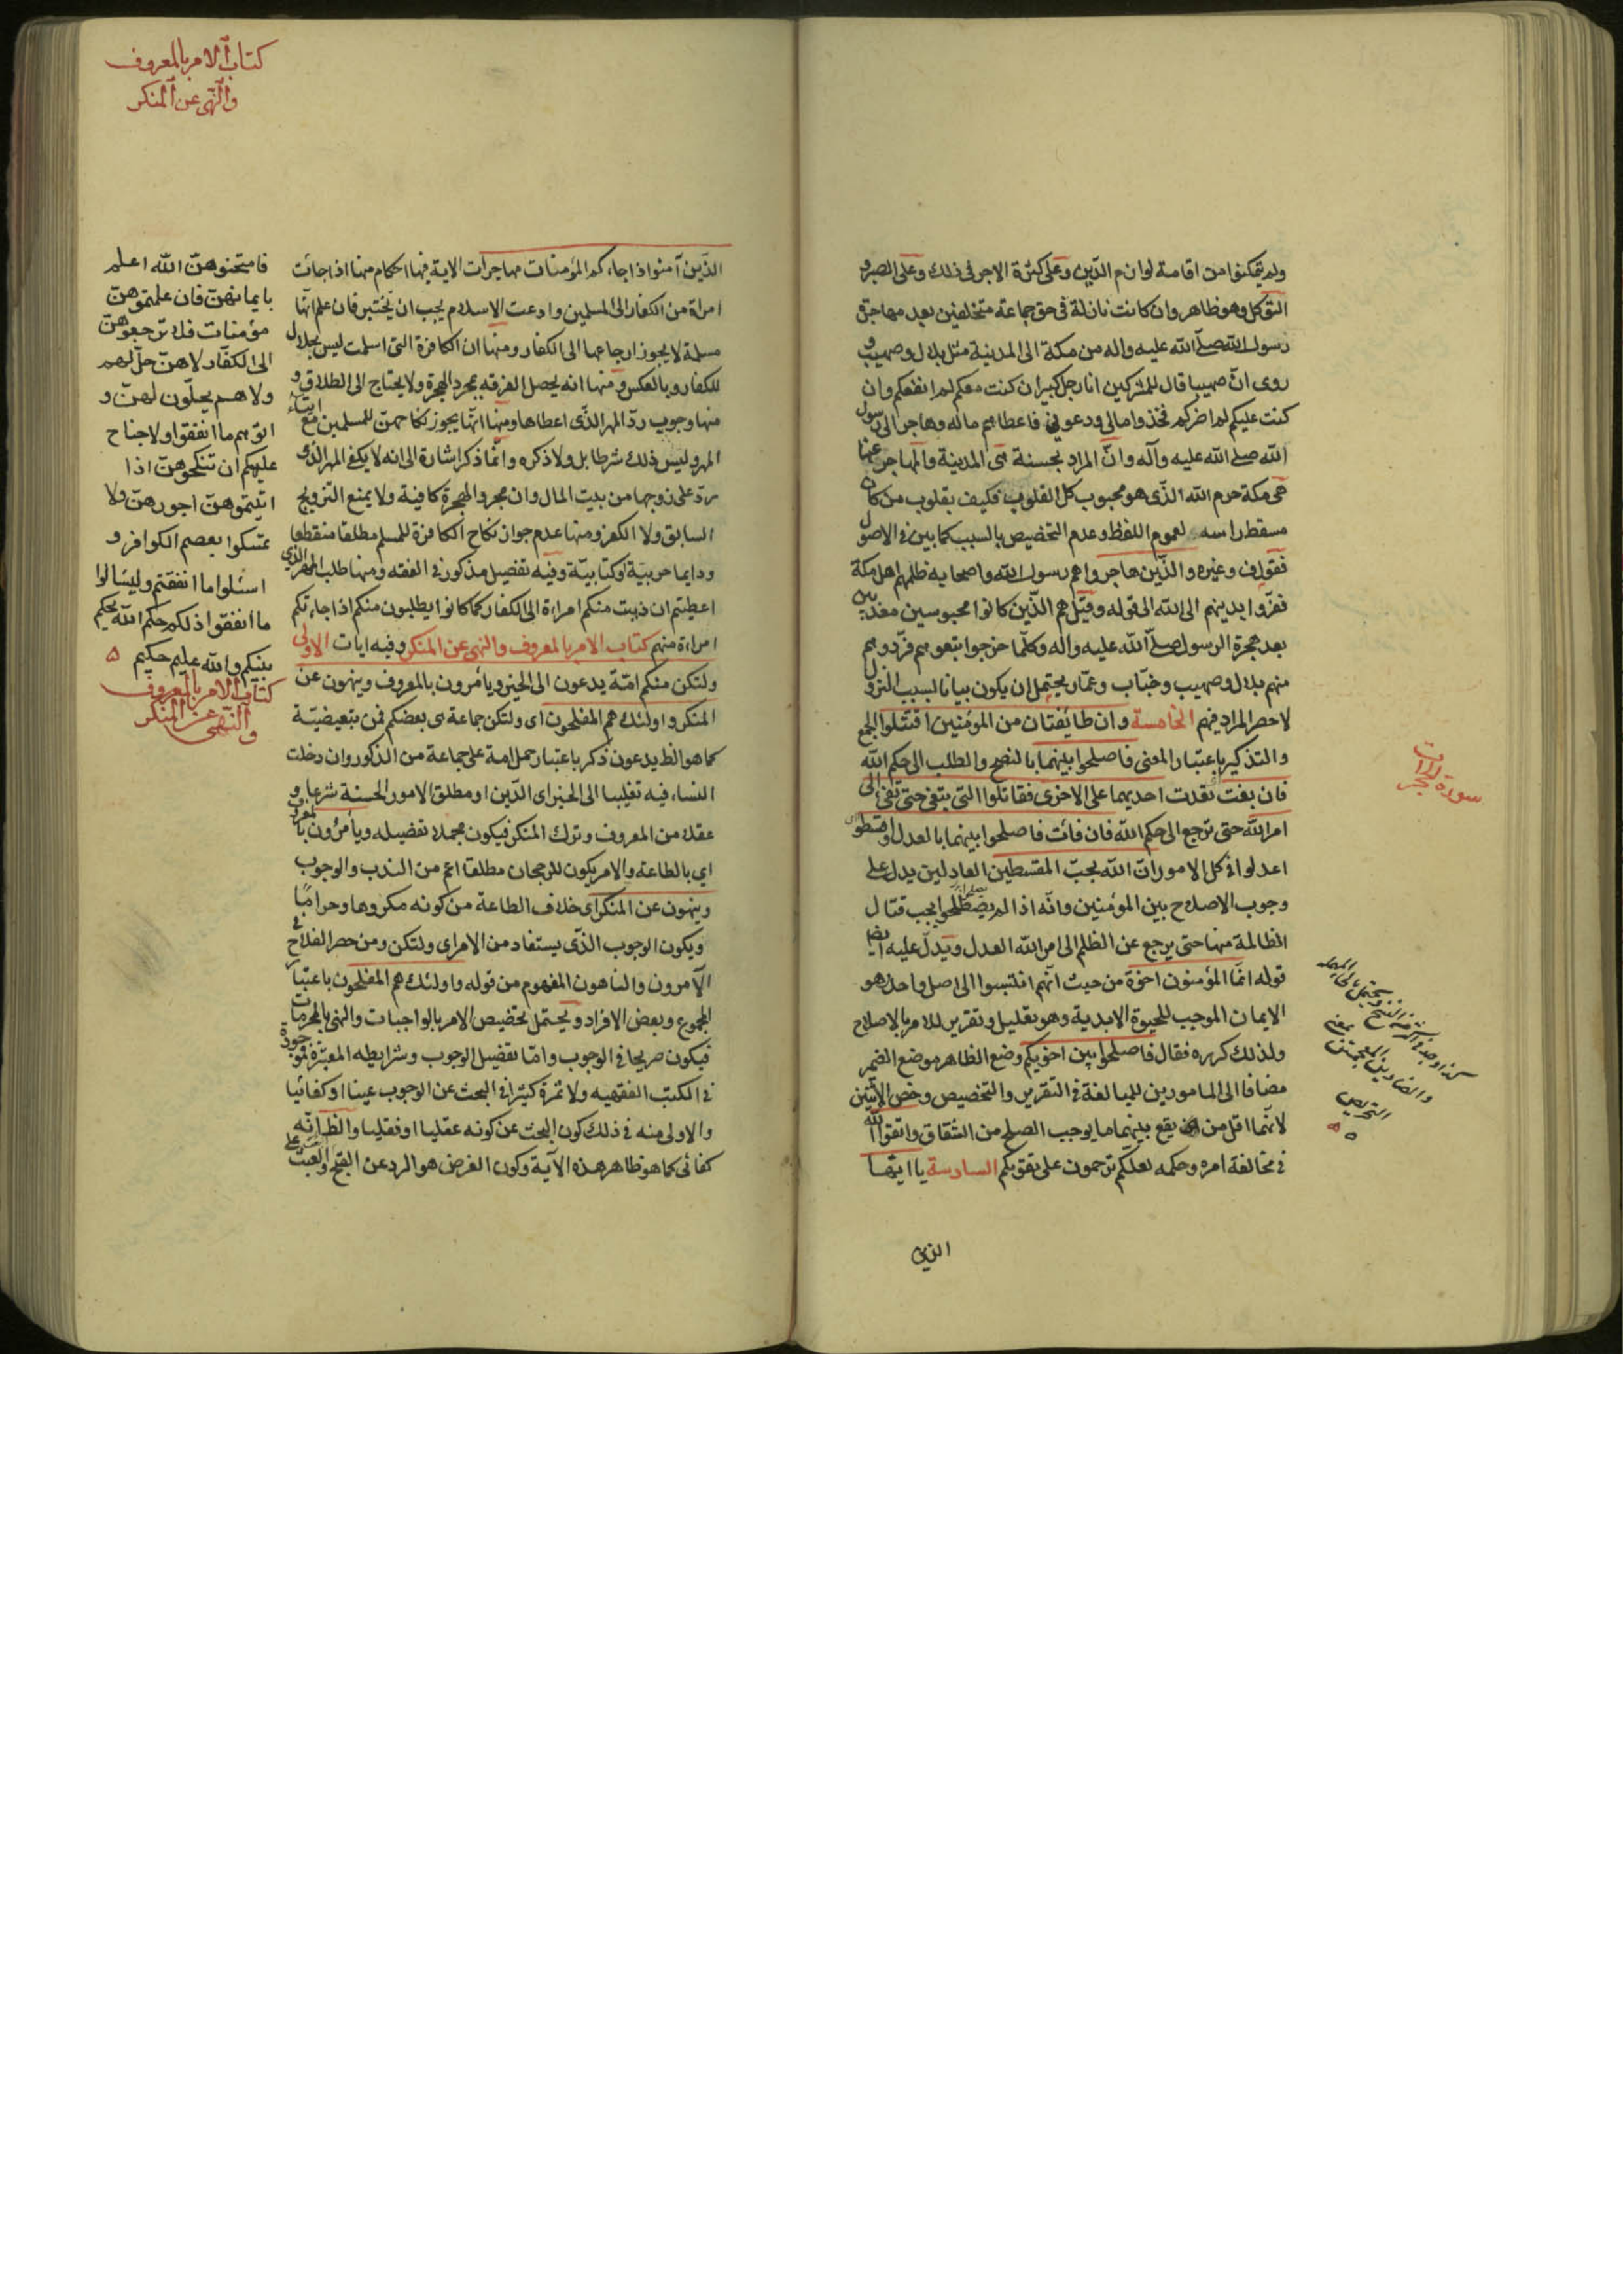 ولم يتمكنوا من اقامة لوازم الدين وعلى كثرة الاجر في ذلك وعلى الصبر و
التوكل وهو ظاهر وان كانت نازلة في حق جماعة متخلفين بعد مهاجرة
رسول الله صلّى الله عليه واله من مكة الى المدينة مثل بلال وصهيب و
روى انّ صهيبا قال للمشركين انا رجل كبير ان كنت معكم لم انفعكم وان
كنت عليكم لم اضركم فخذوا مالي ودعوني فاعطاهم ماله وهاجر الى رسول
الله صلى الله عليه وآله وانّ المراد بحسنة هى المدينة والمهاجر عنها
هى مكة حرم الله الذى هو محبوب كل القلوب فكيف بقلوب من كان
مسقط راسه لعموم اللفظ وعدم التخصيص بالسبب كما بين في الاصول
فقول ف وغيره والذين هاجروا هم رسول الله واصحابه ظلمهم اهل مكة
ففرّوا بدينهم الى الله الى قوله وقيل هم الذين كانوا محبوسين معذبين
بعد هجرة الرسول صلّى الله عليه واله وكلّما خرجوا تبعوهم فردّوهم
منهم بلال وصهيب وخبّاب وعمّار يحتمل ان يكون بيانا لسبب النزول
لا حصر المراد فيهم الخامسة وان طائفتان من المؤمنين اقتتلوا الجمع
والتذكير باعتبار المعنى فاصلحوا بينهما بالنصح والطلب الى حكم الله
فان بغت تعدت احديهما على الاخرى فقاتلوا التى تبغى حتى تفئ الى
امر الله حتى ترجع الى حكم الله فان فائت فاصلحوا بينهما بالعدل واقسطوا
اعدلوا في كل الامور ان الله يحبّ المقسطين العادلين يدل على
وجوب الاصلاح بين المؤمنين وانّه اذا لم يصطلحوا يجب قتال
الظالمة منها حتى يرجع عن الظلم الى امر الله العدل ويدلّ عليه ايضا
قوله انّما المؤمنون اخوة من حيث انهم انتسبوا الى اصل واحد هو
الايمان الموجب للحيوة الابدية وهو تعليل وتقرير للامر بالاصلاح
ولذلك كرره فقال فاصلحوا بين اخويكم وضع الظاهر موضع الضمير
مضافا الى المامورين للمبالغة في التقرير والتخصيص وخص الاثنين
لانّهما اقل من يقع بينهما ما يوجب الصلح من الشقاق واتقوا الله
في مخالفة امره وحكمه لعلّكم ترحمون على تقويكم السادسة يا ايّها
الذين
سورة الحجرات
كتاب الامر بالمعروف
والنّهى عن المنكر
الذّين آمنوا اذا جاءكم المؤمنات مهاجرات الاية فيها احكام منها اذا جائت
امراة من الكفار الى المسلمين وادعت الاسلام يجب ان يختبر فان علم انّها
مسلمة لا يجوز ارجاعها الى الكفار ومنها ان الكافرة التى اسلمت ليس بحلال
للكفار وبالعكس ومنها انه يحصل الفرقة بمجرد الهجرة ولا يحتاج الى الطلاق و
منها وجوب ردّ المهر الذّى اعطاها ومنها انها يجوز نكاحهنّ للمسلمين مع ايتاء
المهر وليس ذلك شرطا بل ولا ذكره وانّما ذكر اشارة الى انه لا يكفى المهر الذى
ردّ على زوجها من بيت المال وان مجرد الهجرة كافية ولا يمنع التزويج
السابق ولا الكفر ومنها عدم جواز نكاح الكافرة للمسلم مطلقا منقطعا
ودايما حربيّة اوكتابيّة وفيه تفصيل مذكور في الفقه ومنها طلب المهر الذى
اعطيتم ان ذهبت منكم امراءة الى الكفار كما كانوا يطلبون منكم اذا جاءتكم
امراءة منهم كتاب الامر بالمعروف والنهى عن المنكر وفيه ايات الاولى
ولتكن منكم امّة يدعون الى الخير ويأمرون بالمعروف وينهون عن
المنكر واولئك هم المفلحون اى ولتكن جماعة هى بعضكم فمن تبعيضيّة
كما هو الظ يدعون ذكر باعتبار حمل امة على جماعة من الذكور وان دخلت
النساء فيه تغليبا الى الخير اى الدّين او مطلق الامور الحسنة شرعا و
عقلا من المعروف وترك المنكر فيكون مجملا تفصيله ويأمرون بالمعروف
اي بالطاعة والامر يكون للرجحان مطلقا اعم من الندب والوجوب
وينهون عن المنكر اى خلاف الطاعة من كونه مكروها وحراما
ويكون الوجوب الذّى يستفاد من الامر اى ولتكن ومن حصر الفلاح في
الآمرون والناهون المفهوم من قوله واولئك هم المفلحون باعتبار
المجموع وبعض الافراد ويحتمل تخصيص الامر بالواجبات والنهى بالمحرمات
فيكون صريحا في الوجوب وامّا تفصيل الوجوب وشرايطه المعتبرة فموجودة
في الكتب الفقهيه ولا ثمرة كثيرا في البحث عن الوجوب عينا او كفائيا
والاولى منه في ذلك كون البحث عن كونه عقليا او نقليا والظ انّه
كفائى كما هو ظاهر هذه الآية وكون الغرض هو الرد عن القبح والبعث على
فامتحنوهنّ الله اعلم
بايمانهنّ فان علمتموهنّ
مؤمنات فلا ترجعوهنّ
الى الكفّار لا هنّ حلّ لهم
ولا هم يحلّون لهنّ و
اتوهم ما انفقوا ولا جناح
عليكم ان تنكحوهنّ اذا
اتيتموهنّ اجورهنّ ولا
تمسكوا بعصم الكوافر و
اسئلوا ما انفقتم وليسالوا
ما انفقوا ذلكم حكم الله يحكم
بينكم والله عليم حكيم
كتاب الامر بالمعروف
والنّهى عن المنكر